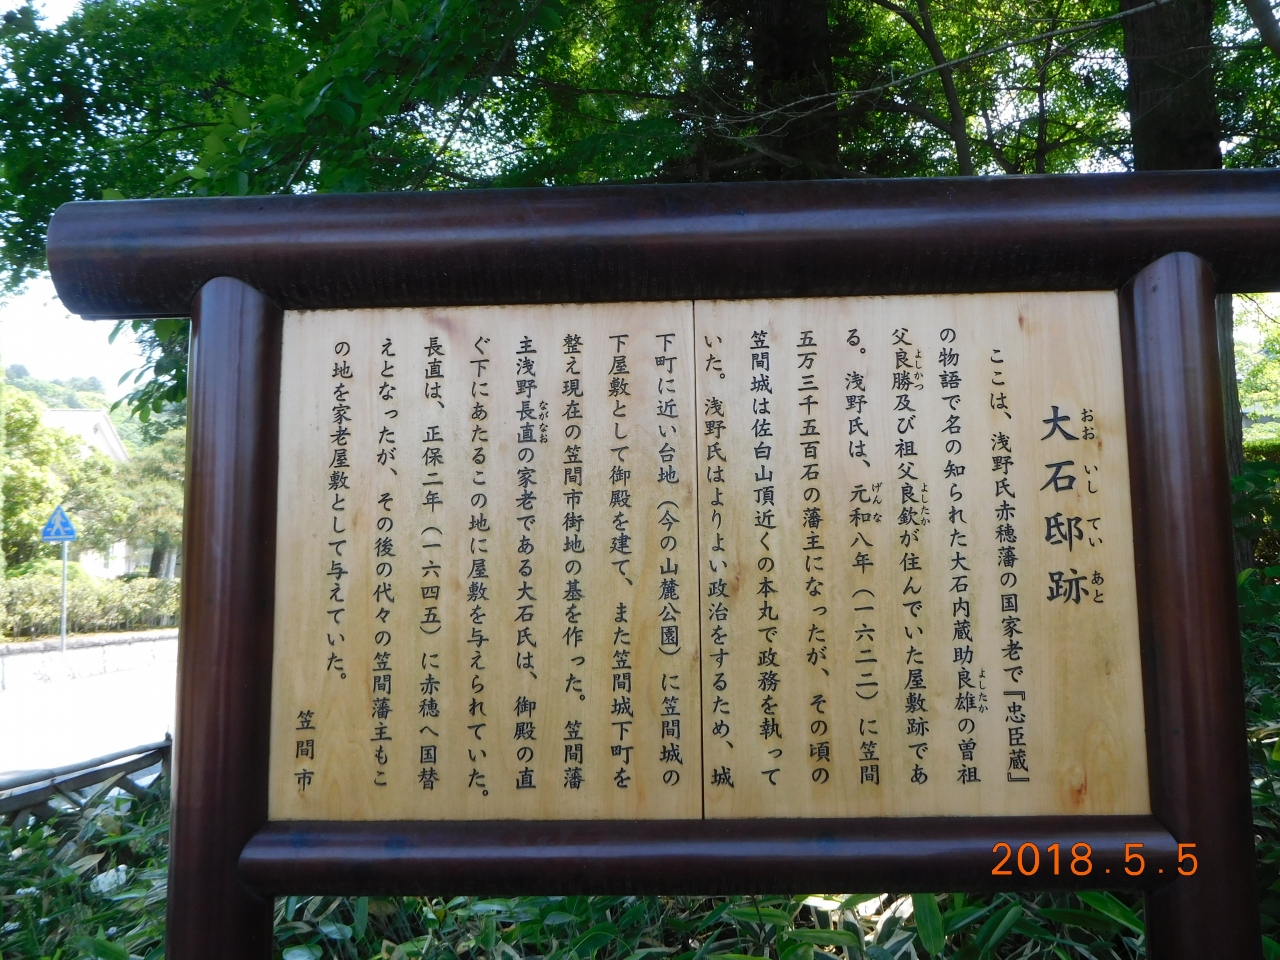 大石邸跡
おおいしていあと
ここは、浅野氏赤穂藩の国家老で『忠臣蔵』
の物語で名の知られた大石内蔵助良雄の曽祖
よしたか
父良勝及び祖父良欽が住んでいた屋敷跡であ
よしかつ
よしたか
る。浅野氏は、元和八年(一六二二)に笠間
げんな
五万三千五百石の藩主になったが、その頃の
笠間城は佐白山頂近くの本丸で政務を執って
いた。浅野氏はよりよい政治をするため、城
下町に近い台地(今の山麓公園)に笠間城の
下屋敷として御殿を建て、また笠間城下町を
整え現在の笠間市街地の基を作った。笠間藩
主浅野長直の家老である大石氏は、御殿の直
ながなお
ぐ下にあたるこの地に屋敷を与えられていた。
長直は、正保二年(一六四五)に赤穂へ国替
えとなったが、その後の代々の笠間藩主もこ
の地を家老屋敷として与えていた。
笠間市
2018.5.5